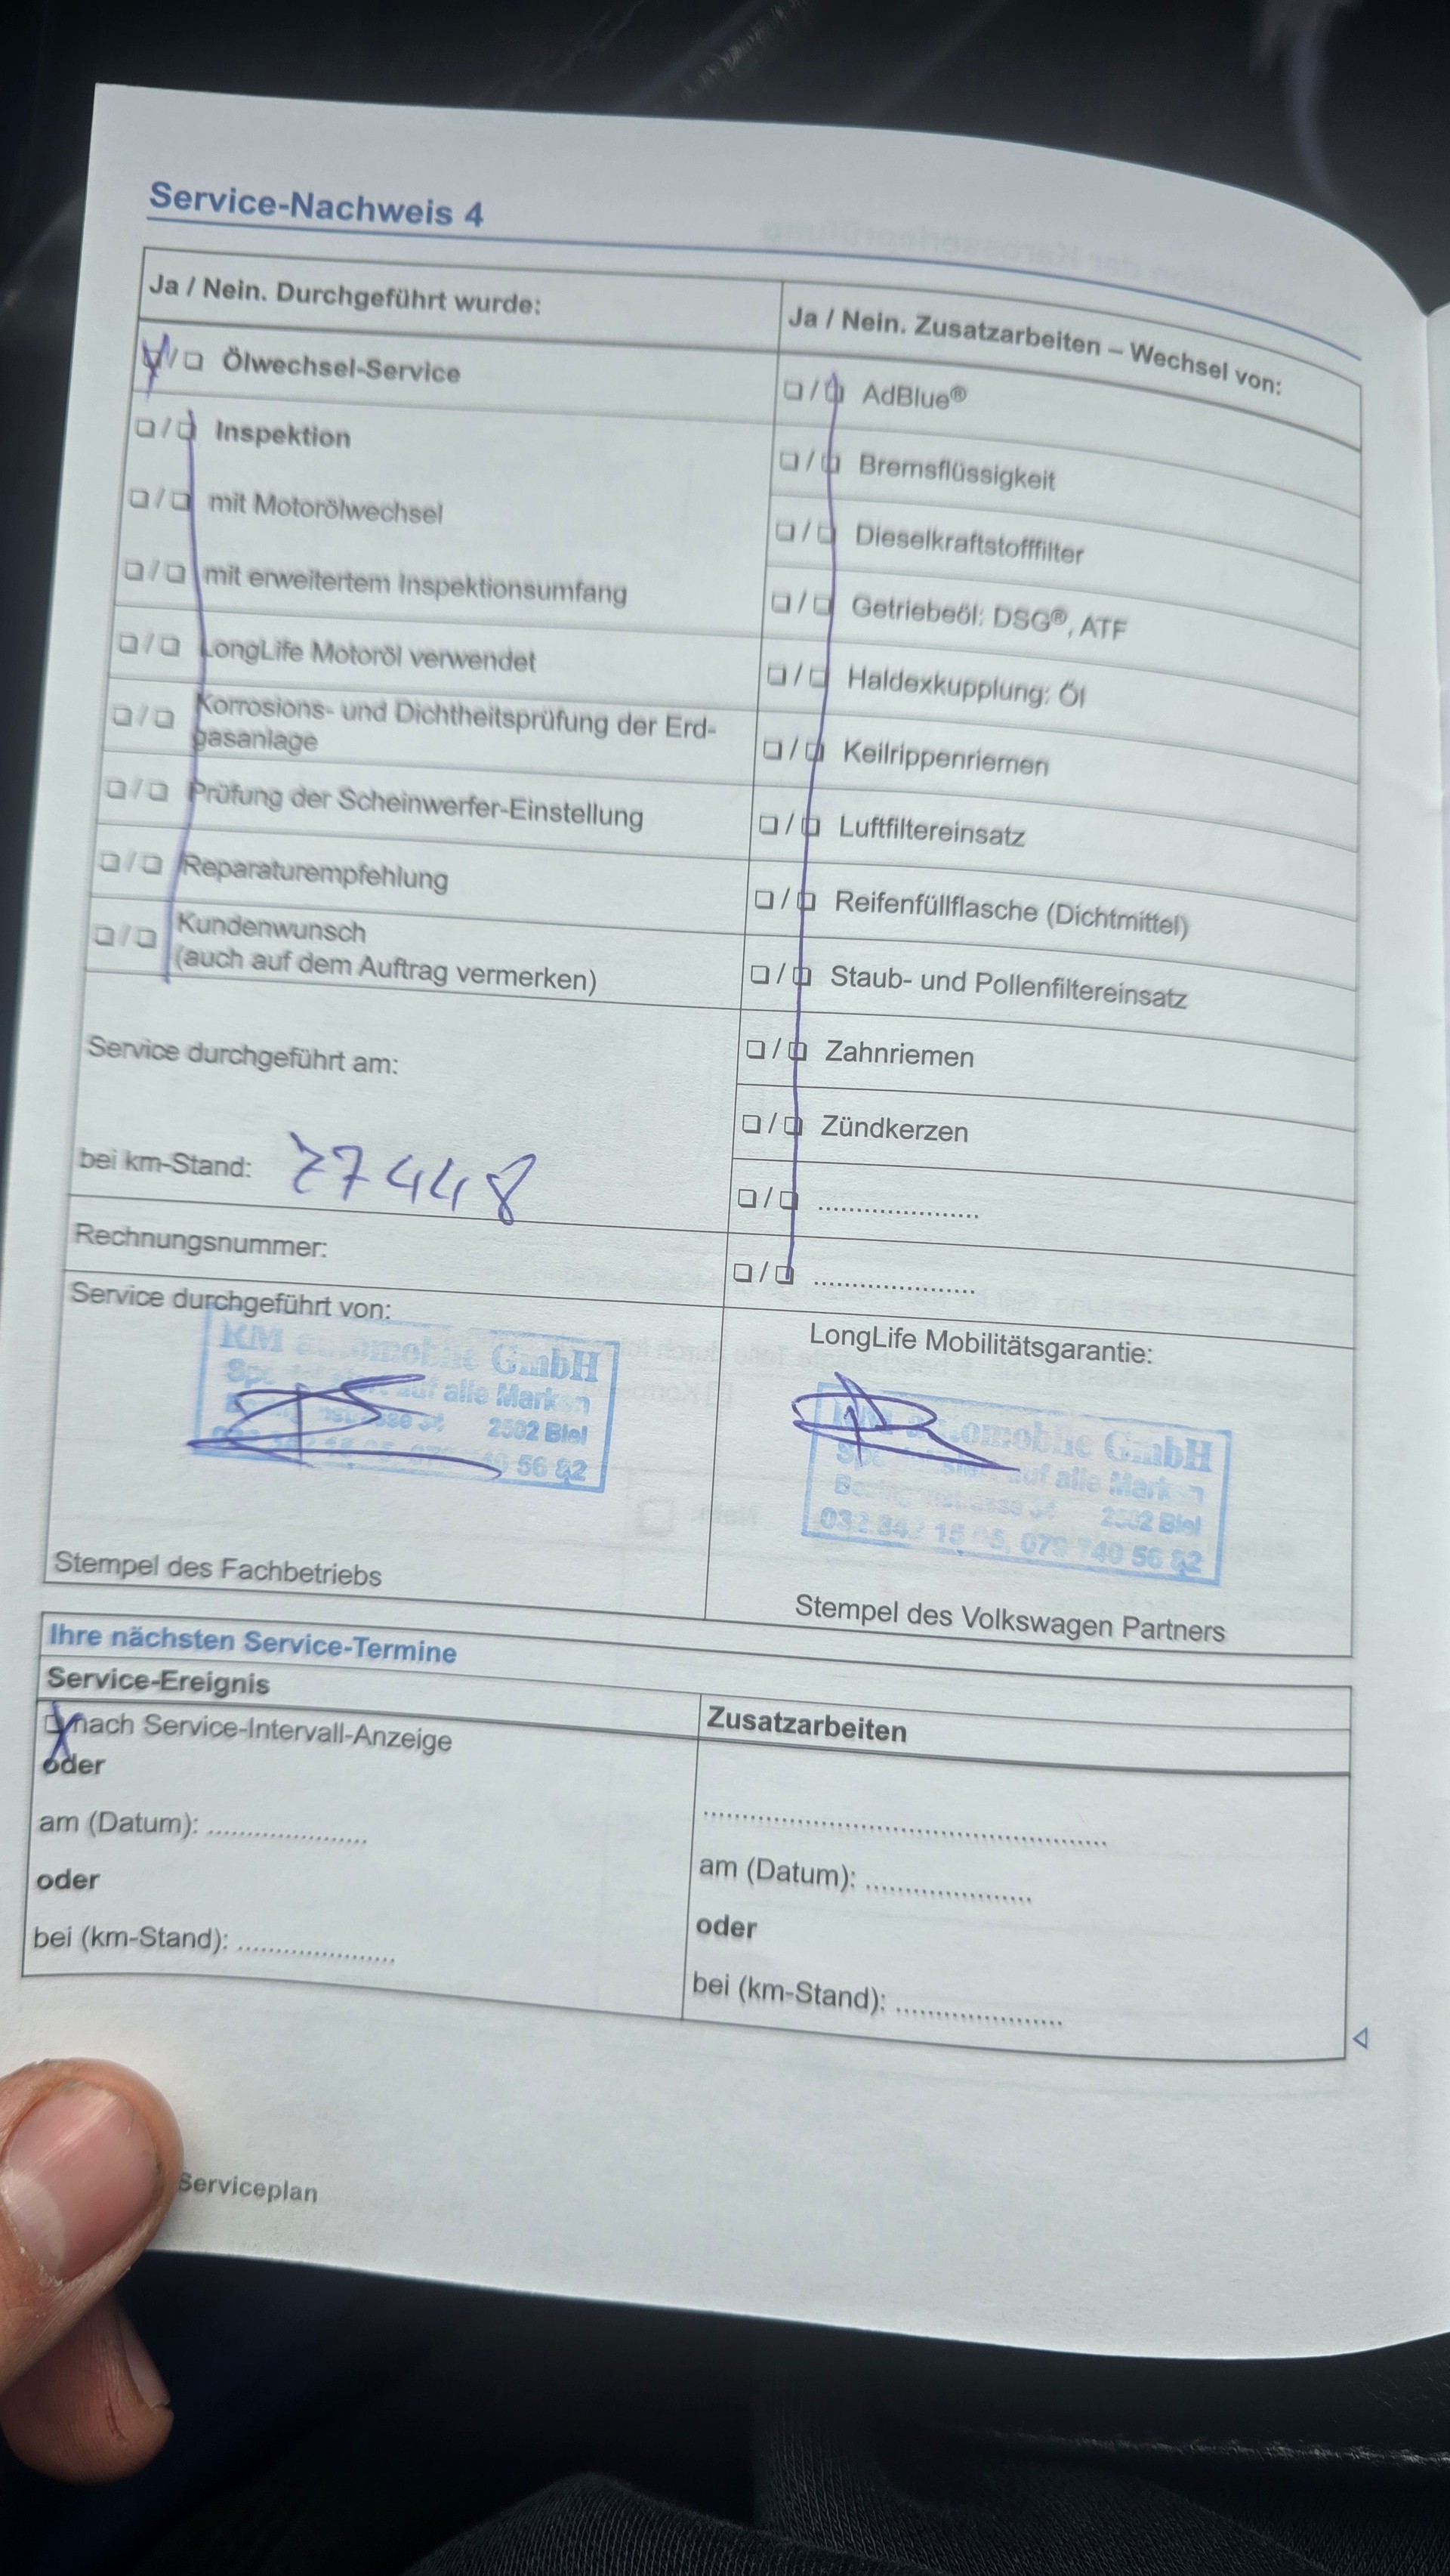 Service-Nachweis 4
Ja / Nein. Durchgeführt wurde:
❏/❏ Ölwechsel-Service
❏/❏ Inspektion
❏/❏ mit Motorölwechsel
❏/❏ mit erweitertem Inspektionsumfang
❏/❏ LongLife Motoröl verwendet
❏/❏ Korrosions- und Dichtheitsprüfung der Erd-
gasanlage
❏/❏ Prüfung der Scheinwerfer-Einstellung
❏/❏ Reparaturempfehlung
❏/❏ Kundenwunsch
(auch auf dem Auftrag vermerken)
Service durchgeführt am:
bei km-Stand: 27448
Rechnungsnummer:
Service durchgeführt von:
KM automobile GmbH
auf alle Marken
2502 Biel
56 82
Stempel des Fachbetriebs
Ja / Nein. Zusatzarbeiten – Wechsel von:
❏/❏ AdBlue®
❏/❏ Bremsflüssigkeit
❏/❏ Dieselkraftstofffilter
❏/❏ Getriebeöl: DSG®, ATF
❏/❏ Haldexkupplung: Öl
❏/❏ Keilrippenriemen
❏/❏ Luftfiltereinsatz
❏/❏ Reifenfüllflasche (Dichtmittel)
❏/❏ Staub- und Pollenfiltereinsatz
❏/❏ Zahnriemen
❏/❏ Zündkerzen
❏/❏ .....................
❏/❏ .....................
LongLife Mobilitätsgarantie:
KM automobile GmbH
auf alle Marken
2502 Biel
079 740 56 82
Stempel des Volkswagen Partners
Ihre nächsten Service-Termine
Service-Ereignis
❏ nach Service-Intervall-Anzeige
oder
am (Datum): .....................
oder
bei (km-Stand): .....................
Zusatzarbeiten
.....................................................
am (Datum): .....................
oder
bei (km-Stand): .....................
Serviceplan